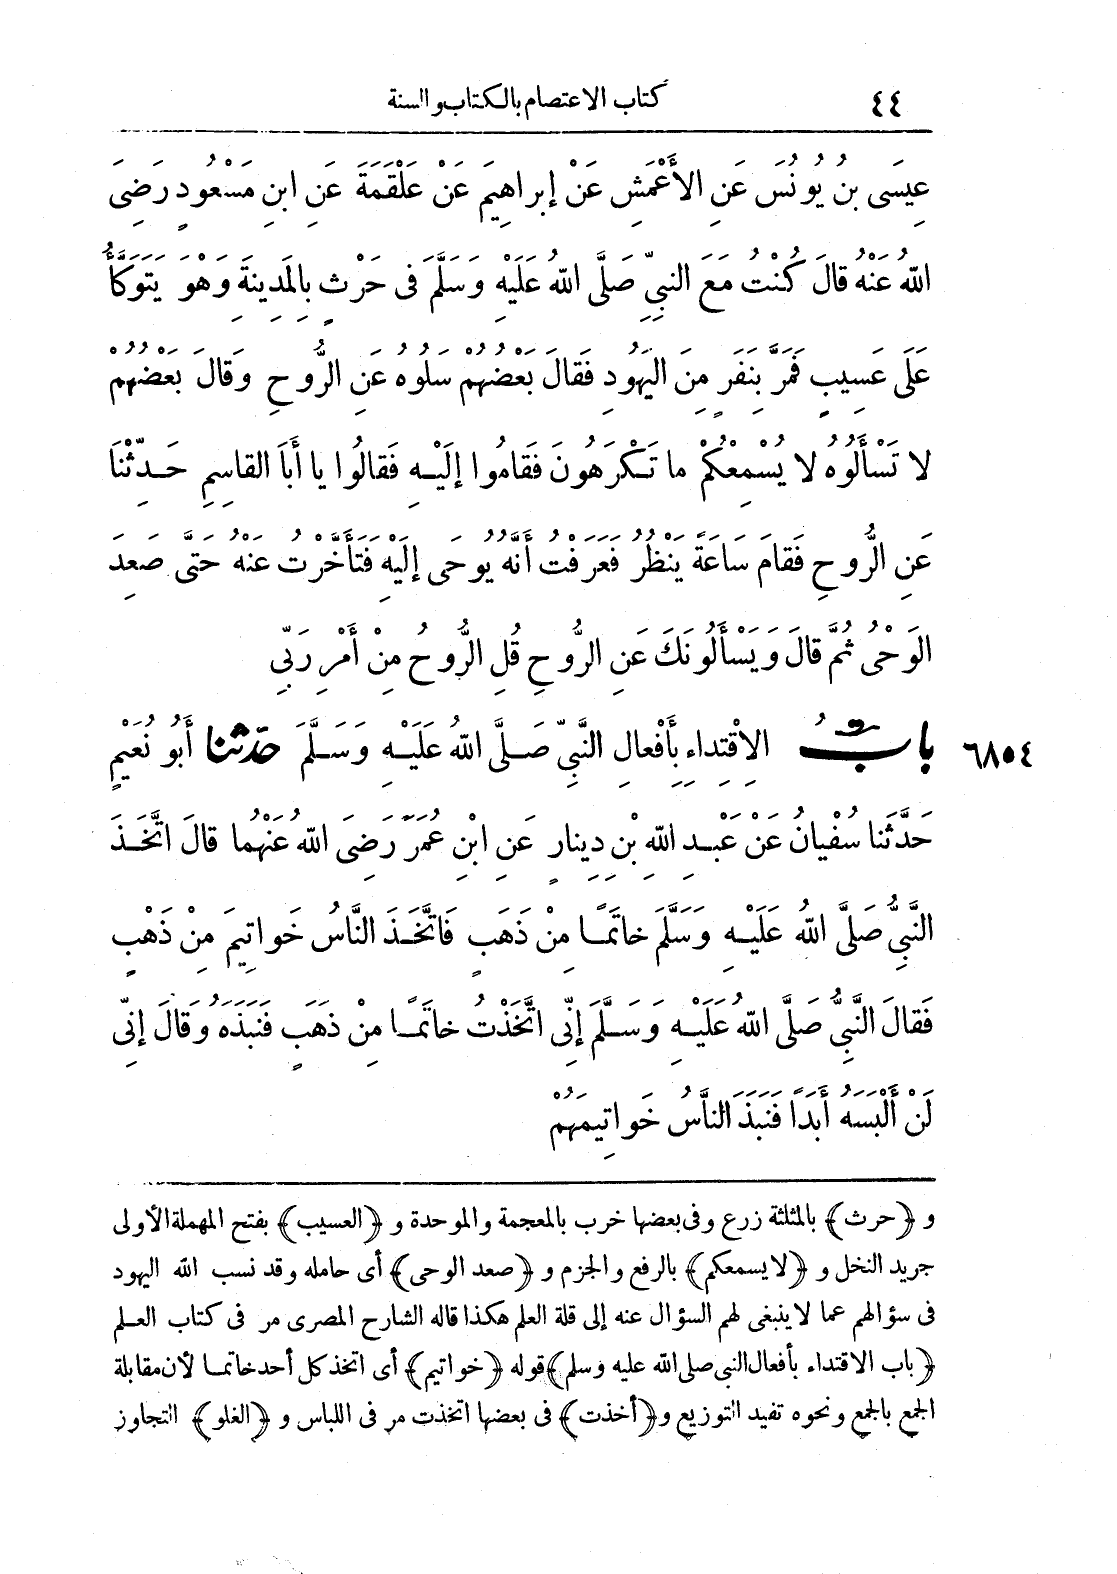 ٤٤ كتاب الاعتصام بالكتاب والسنة
عِيسَى بن يُونُسَ عَنِ الأَعْمَشِ عَنْ إبراهِيمَ عَنْ عَلْقَمَةَ عَنِ ابنِ مَسْعُودٍ رَضِىَ
اللهُ عَنْهُ قالَ كُنْتُ مَعَ النبيِّ صَلَّى اللهُ عَلَيْهِ وَسَلَّمَ فى حَرْثٍ بِالمَدِينَةِ وَهُوَ يَتَوَكَّأُ
عَلَى عَسِيبٍ فَمَرَّ بِنَفَرٍ مِنَ اليَهُودِ فَقالَ بَعْضُهُمْ سَلُوهُ عَنِ الرُّوحِ وَقالَ بَعْضُهُمْ
لا تَسْأَلُوهُ لا يُسْمِعُكُمْ ما تَكْرَهُونَ فَقامُوا إلَيْهِ فَقالُوا يا أَبَا القاسِمِ حَدِّثْنَا
عَنِ الرُّوحِ فَقامَ سَاعَةً يَنْظُرُ فَعَرَفْتُ أَنَّهُ يُوحَى إلَيْهِ فَتَأَخَّرْتُ عَنْهُ حَتَّى صَعِدَ
الوَحْىُ ثُمَّ قالَ وَيَسْأَلُونَكَ عَنِ الرُّوحِ قُلِ الرُّوحُ مِنْ أَمْرِ رَبِّى
٦٨٥٤ بابُ الاِقْتِداءِ بِأَفْعالِ النَّبِيِّ صَلَّى اللهُ عَلَيْهِ وَسَلَّمَ حَدَّثَنا أَبُو نُعَيْمٍ
حَدَّثَنا سُفْيانُ عَنْ عَبْدِ اللهِ بْنِ دِينارٍ عَنِ ابْنِ عُمَرَ رَضِىَ اللهُ عَنْهُما قالَ اتَّخَذَ
النَّبِيُّ صَلَّى اللهُ عَلَيْهِ وَسَلَّمَ خاتَمًا مِنْ ذَهَبٍ فَاتَّخَذَ النَّاسُ خَواتِيمَ مِنْ ذَهَبٍ
فَقالَ النَّبِيُّ صَلَّى اللهُ عَلَيْهِ وَسَلَّمَ إنِّى اتَّخَذْتُ خاتَمًا مِنْ ذَهَبٍ فَنَبَذَهُ وَقالَ إنِّى
لَنْ أَلْبَسَهُ أَبَدًا فَنَبَذَ النَّاسُ خَواتِيمَهُمْ
و ﴿حرث﴾ بالمثلثة زرع وفى بعضها خرب بالمعجمة والموحدة و ﴿العسيب﴾ بفتح المهملة الأولى
جريد النخل و ﴿لا يسمعكم﴾ بالرفع والجزم و ﴿صعد الوحى﴾ أى حامله وقد نسب الله اليهود
فى سؤالهم عما لا ينبغى لهم السؤال عنه إلى قلة العلم هكذا قاله الشارح المصرى مر فى كتاب العلم
﴿باب الاقتداء بأفعال النبى صلى الله عليه وسلم﴾ قوله ﴿خواتيم﴾ أى اتخذ كل أحد خاتما لأن مقابلة
الجمع بالجمع ونحوه تفيد التوزيع و﴿أخذت﴾ فى بعضها اتخذت مر فى اللباس و ﴿الغلو﴾ التجاوز